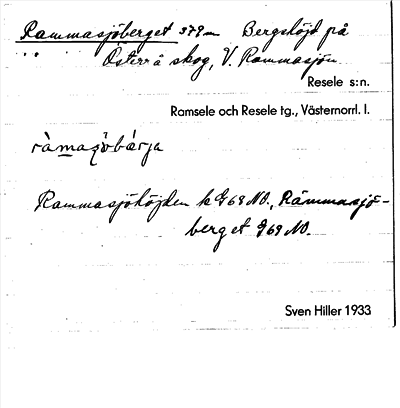 Rammasjöberget 379 m Bergshöjd på
Österrå skog, V. Rammasjön.
Resele s:n.
Ramsele och Resele tg., Västernorrl. l.
ràmaʂö̀bærja
Rammasjöhöjden k G69 NO., Rämmasjö-
berget G69 NO.
Sven Hiller 1933